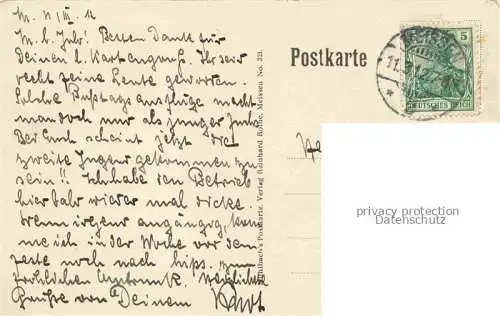 M. 11/III. 12
M. l. Jub! Besten Dank für
Deinen l. Kartengruß. Ihr seid
recht feine Leute geworden.
Solche Bußtagsausflüge macht
man doch nur als junger
Bei Euch scheint jetzt die
zweite Jugend gekommen zu
sein!! Ich habe den Betrieb
hier wieder mal dicke.
Wenn irgend angängig, komme
ich in der Woche vor dem
Feste noch nach
fröhlichen Herzlichste
Grüße von Deinem
Postkarte
MEISSEN
11.3.
5
DEUTSCHES REICH
Postkarte. Verlag Reinhard Rothe, Meissen No. 323.
privacy protection
Datenschutz